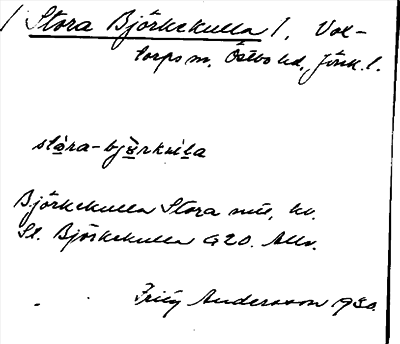 / Stora Björkekulla /. Vok-
torps sn, Östbo hd, Jönk. l.
stòra-bjö̀rkhila
Björkekulla Stora mtl, kv.
St. Björkekulla G20. Allv.
Fritz Andersson 1930.